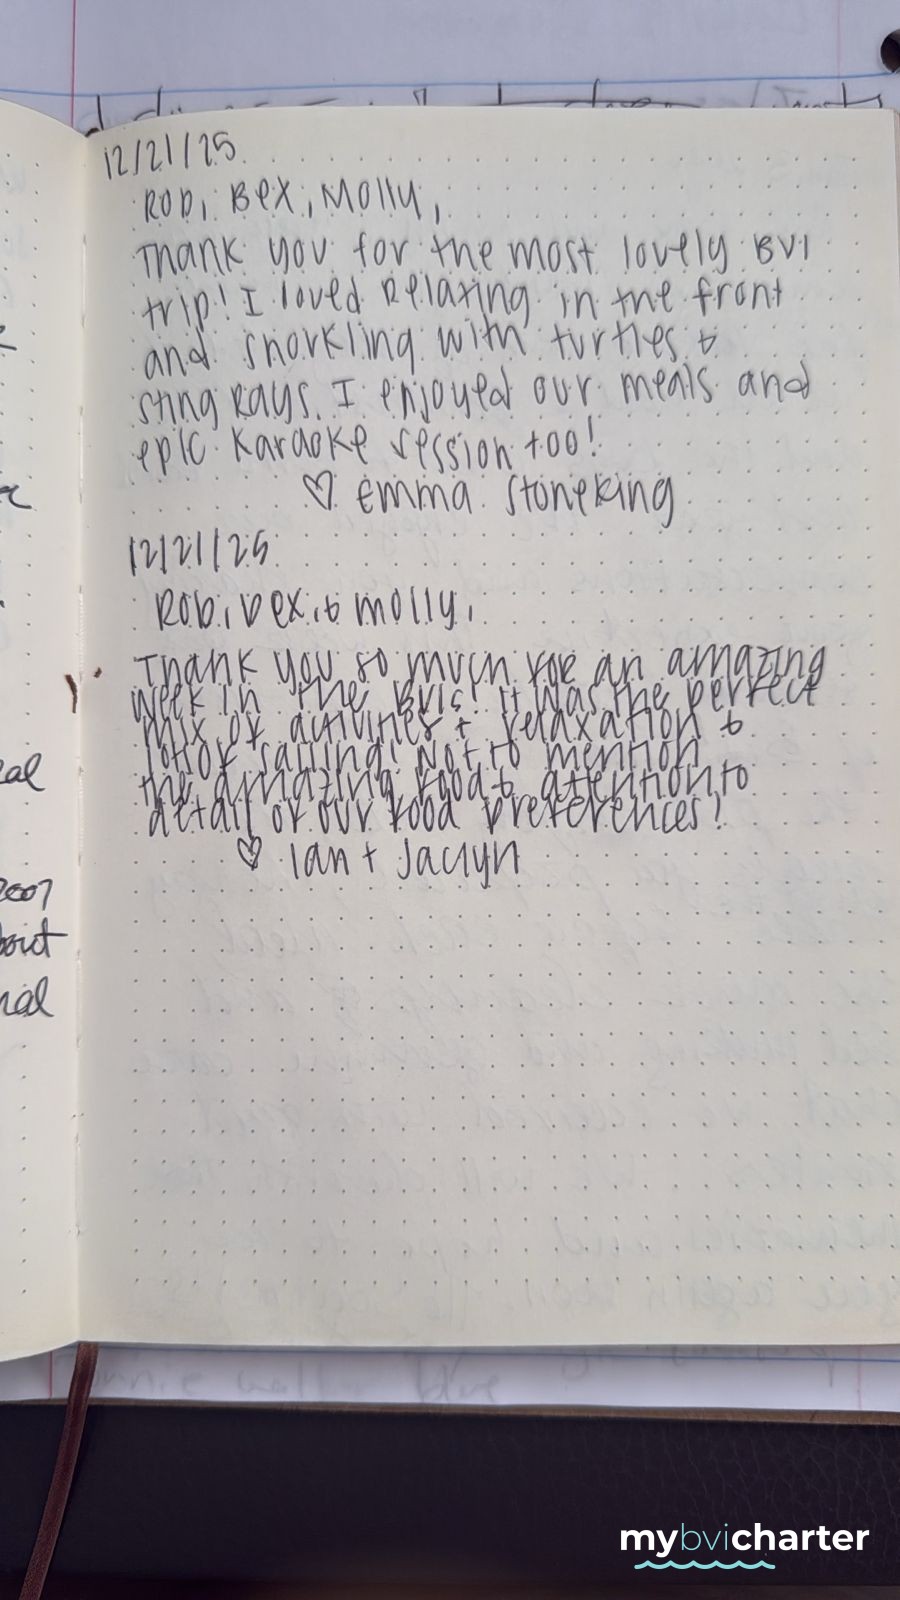 12/21/25
Rob, Bex, Molly,
Thank you for the most lovely BVI
trip! I loved relaxing in the front
and snorkling with turtles &
sting rays. I enjoyed our meals and
epic karaoke session too!
♡ Emma Stoneking
12/21/25
Rob, Bex, & Molly,
Thank you so much for an amazing
week in the BVIs! It was the perfect
mix of activities + relaxation &
lots of sailing! Not to mention
the amazing food & attention to
detail of our food preferences!
♡ Ian + Jaclyn
2007
bout
mybvicharter